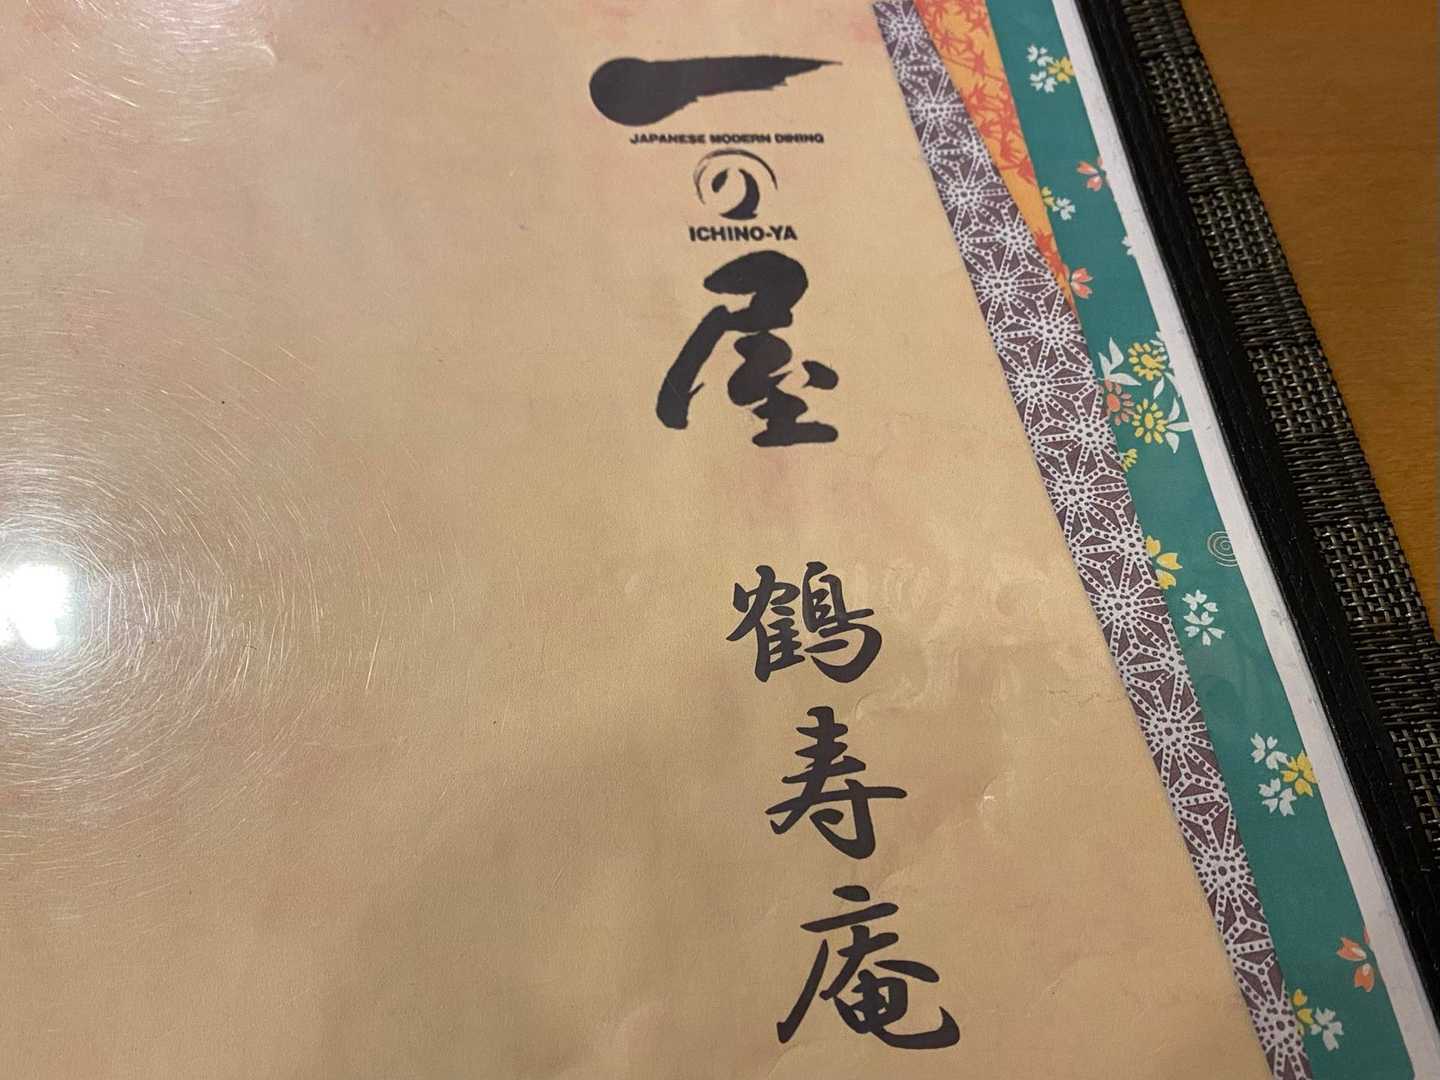 一
JAPANESE MODERN DINING
の
ICHINO-YA
屋
鶴寿庵